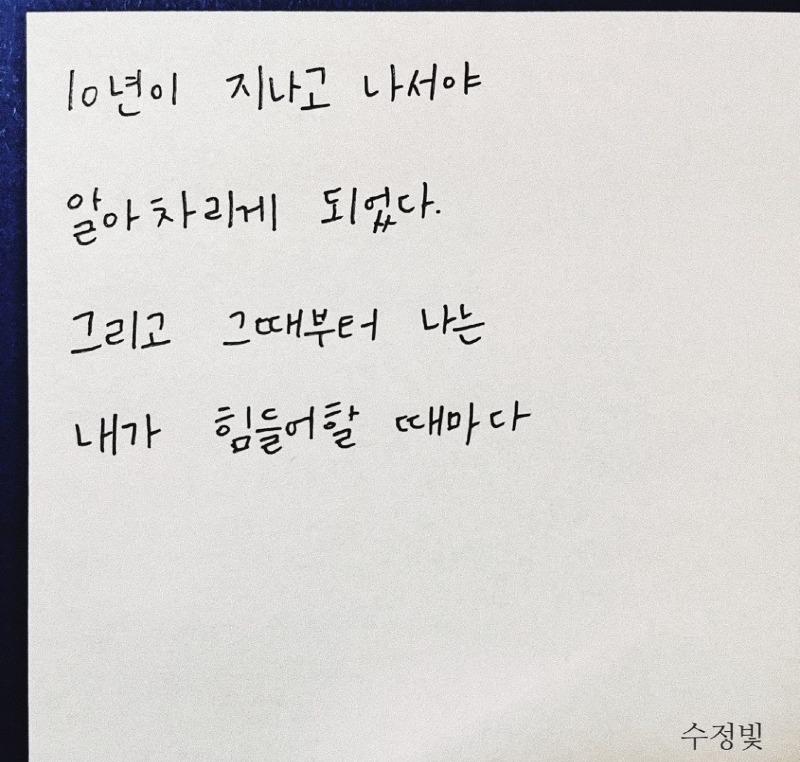 10년이 지나고 나서야
알아차리게 되었다.
그리고 그때부터 나는
내가 힘들어할 때마다
수정빛